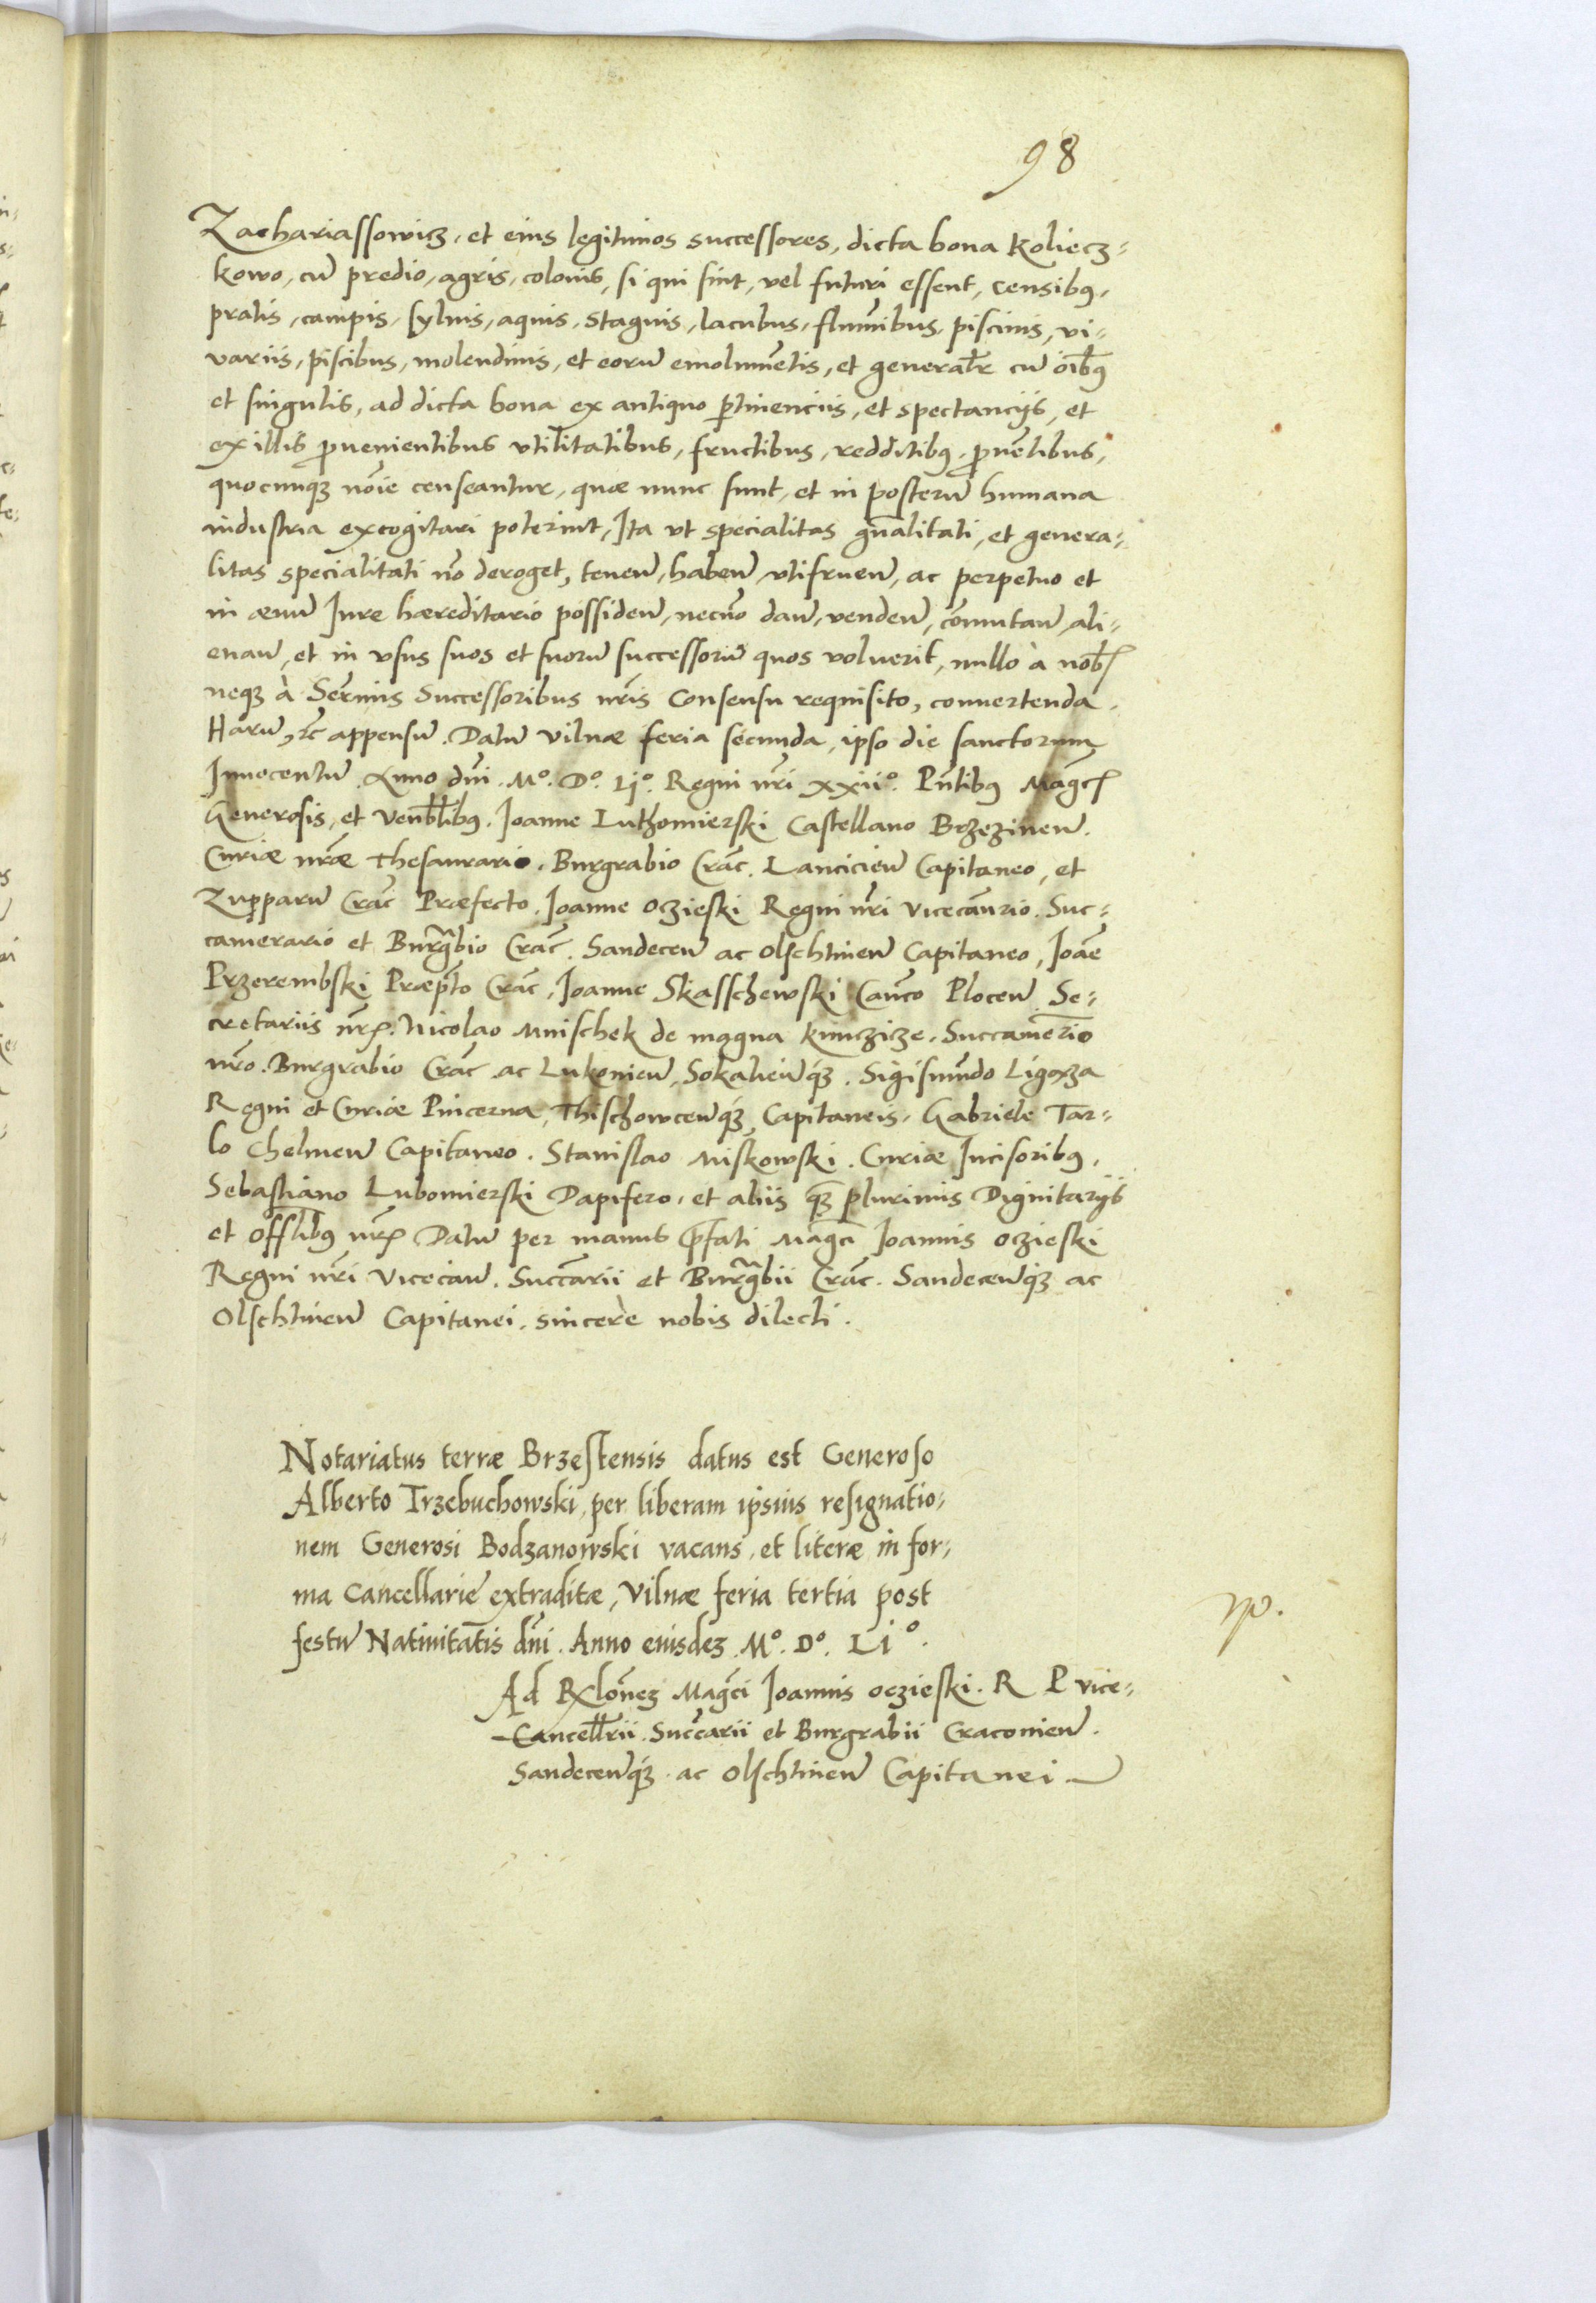 98
Zachariassowicz, et eius legitimos successores, dicta bona Koliecz-
kowo, cū predio, agris, colonis, si qui sint, vel futuri essent, censibꝰ,
pratis, campis, syluis, aquis, stagnis, lacubus, fluminibus, piscinis, vi-
variis, piscibus, molendinis, et eorū emolumētis, et generalr̄ cū oībꝰ
et singulis, ad dicta bona ex antiquo ptinenciis, et spectancijs, et
ex illis ꝓuenientibus vtilitatibus, fructibus, redditibꝰ, ꝓuētibus,
quocunqꝫ noīe censeantur, quæ nunc sunt, et in posterū humana
industria excogitari poterint, Ita vt specialitas gn̄alitati, et genera-
litas specialitati nō deroget, tenen̄, haben̄, vtifruen̄, ac perpetuo et
in æuū Iure hæreditario possiden̄, necnō dan̄, venden̄, cōmutan̄, ali-
enan̄, et in vsus suos et suorū successorū quos voluerit, nullo à nob̄
neqꝫ à Serm̄is Successoribus nr̄is Consensu requisito, conuertenda.
Harū, ꝛc̄ appensū. Datū Vilnæ feria secunda, ipso die sanctorum
Innocentū. Anno dn̄i. Mº. Dº. Ljº. Regni nr̄i xxiiº. Pn̄tibꝰ Magc̄
Generosis, et Venblībꝰ. Joanne Luthomierski Castellano Brzezinen̄.
Curiæ nr̄æ Thesaurario. Burgrabio Crac̄. Lancicien̄ Capitaneo, et
Zupparū Crac̄ Præfecto. Joanne Oczieski Regni nr̄i Vicecan̄rio. Suc-
camerario et Burgr̄bio Crac̄. Sandecen̄ ac Olschtinen̄ Capitaneo, Joāe
Przerembski Præpt̄o Crac̄, Joanne Skasschewski Can̄co Plocen̄ Se-
cretariis nr̄. Nicolao Mnischek de magna Kunczicze. Succamerīo
nr̄o. Burgrabio Crac̄ ac Lukonien̄, Sokalien̄qꝫ. Sigismūdo Ligęza
Regni et Curiæ Pincerna, Thischowcen̄qꝫ, Capitaneis. Gabriele Tar-
lo Chelmen̄ Capitaneo. Stanislao Miskowski. Curiæ Incisoribꝰ,
Sebastiano Lubomierski Dapifero, et aliis qꝫ plurimis Dignitarijs
et Offlībꝰ nr̄ Datū per manus p̄fati Magc̄i Joannis Oczieski
Regni nr̄i Vicecan̄. Succ̄arii et Burgr̄bii Crac̄. Sandecen̄qꝫ ac
Olschtinen̄ Capitanei. sincere nobis dilecti.
Notariatus terræ Brzestensis datus est Generoso
Alberto Trzebuchowski, per liberam ipsius resignatio-
nem Generosi Bodzanowski vacans, et literæ in for-
ma Cancellarie extraditæ, Vilnæ feria tertia post
festū Natiuitatis dn̄i. Anno eiusdeꝫ. Mº. Dº. Liº.
Ad Rlōneꝫ Magc̄i Joannis Oczieski. R P vice-
Cancellr̄ii. Succ̄arii et Burgrabii Cracouien̄.
Sandecen̄qꝫ. ac Olschtinen̄ Capitanei